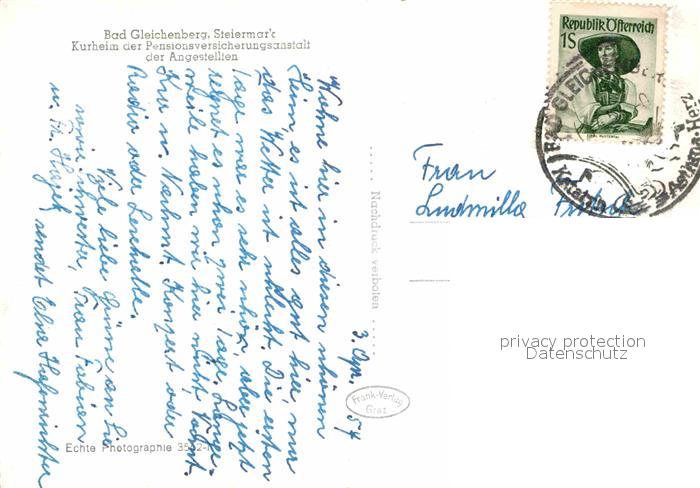 Bad Gleichenberg, Steiermark
Kurheim der Pensionsversicherungsanstalt
der Angestellten
3. Apr. 54
Wohne hier in diesem schönen
Heim, es ist alles gut hier, nur
das Wetter ist schlecht. Die ersten
Tage war es sehr schön, aber jetzt
regnet es schon zwei Tage. Lange-
weile haben wir hier nicht, Vorm.
Kur u. Nachmit. Konzert oder
Radio oder Lesehalle.
Viele liebe Grüsse an Sie
sowie Schwester, Frau Fabien
u. Fr. sendet
Echte Photographie
Nachdruck verboten
Frank-Verlag
Graz
Republik Österreich
1S
BAD GLEICHENBERG
Frau
Ludmilla
privacy protection
Datenschutz